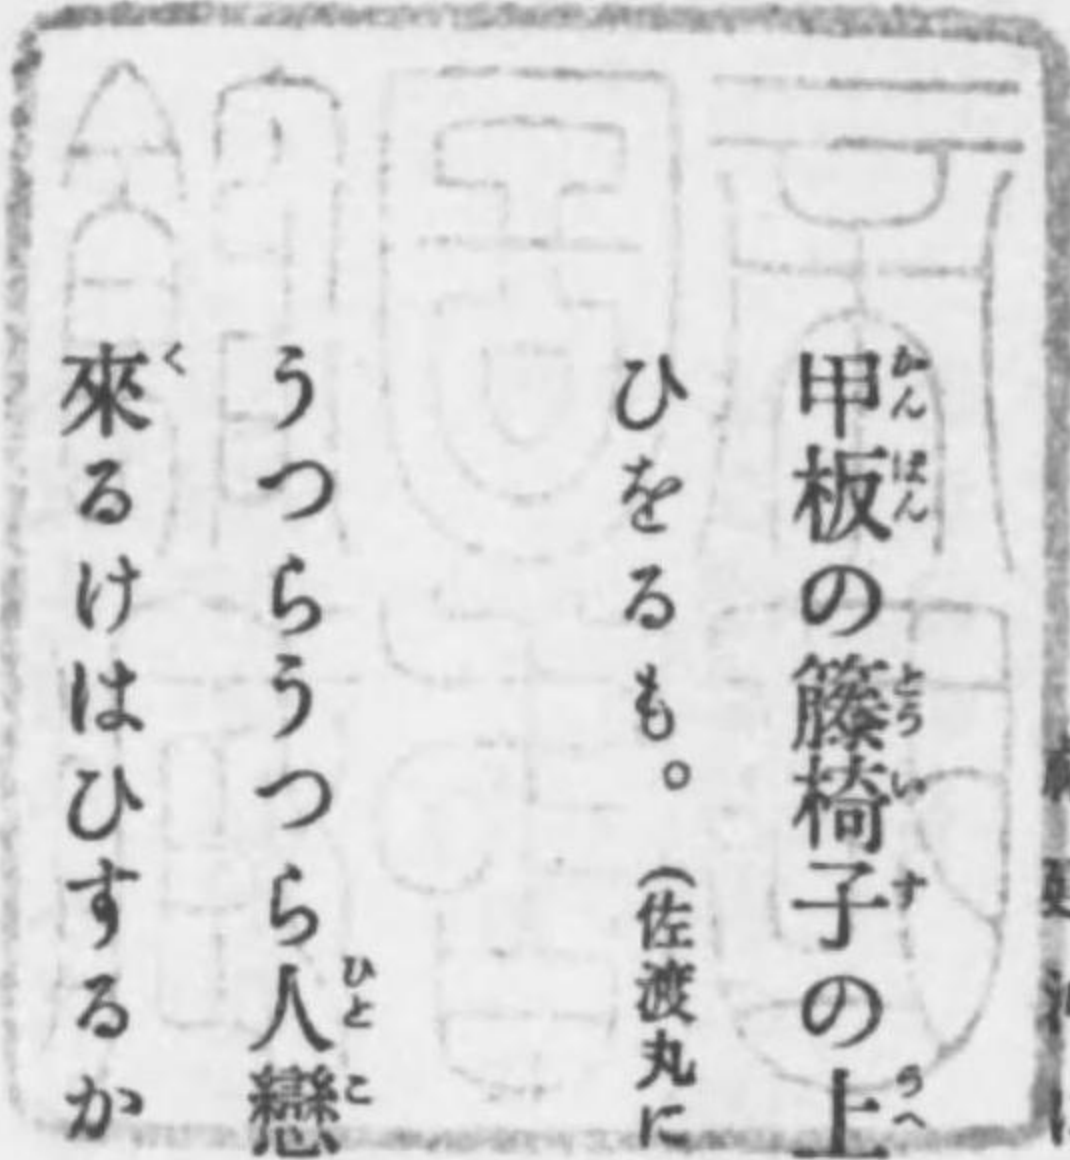 甲板の籐椅子の上
ひをるも。(佐渡丸に
うつらうつら人戀
來るけはひするか